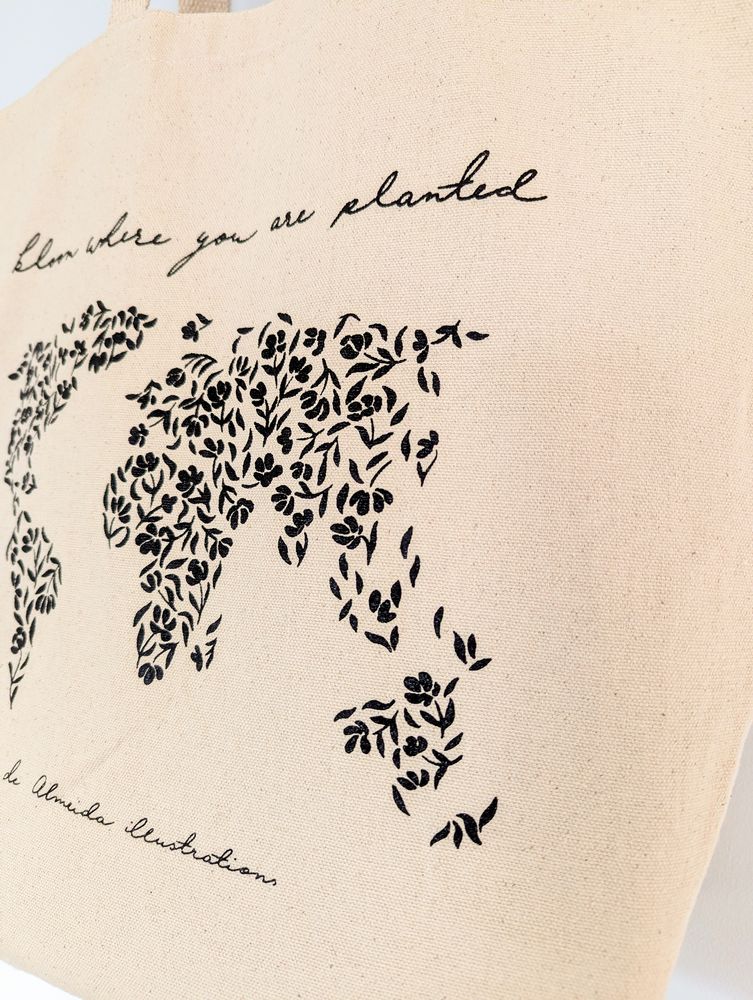 bloom where you are planted
de Almeida illustrations